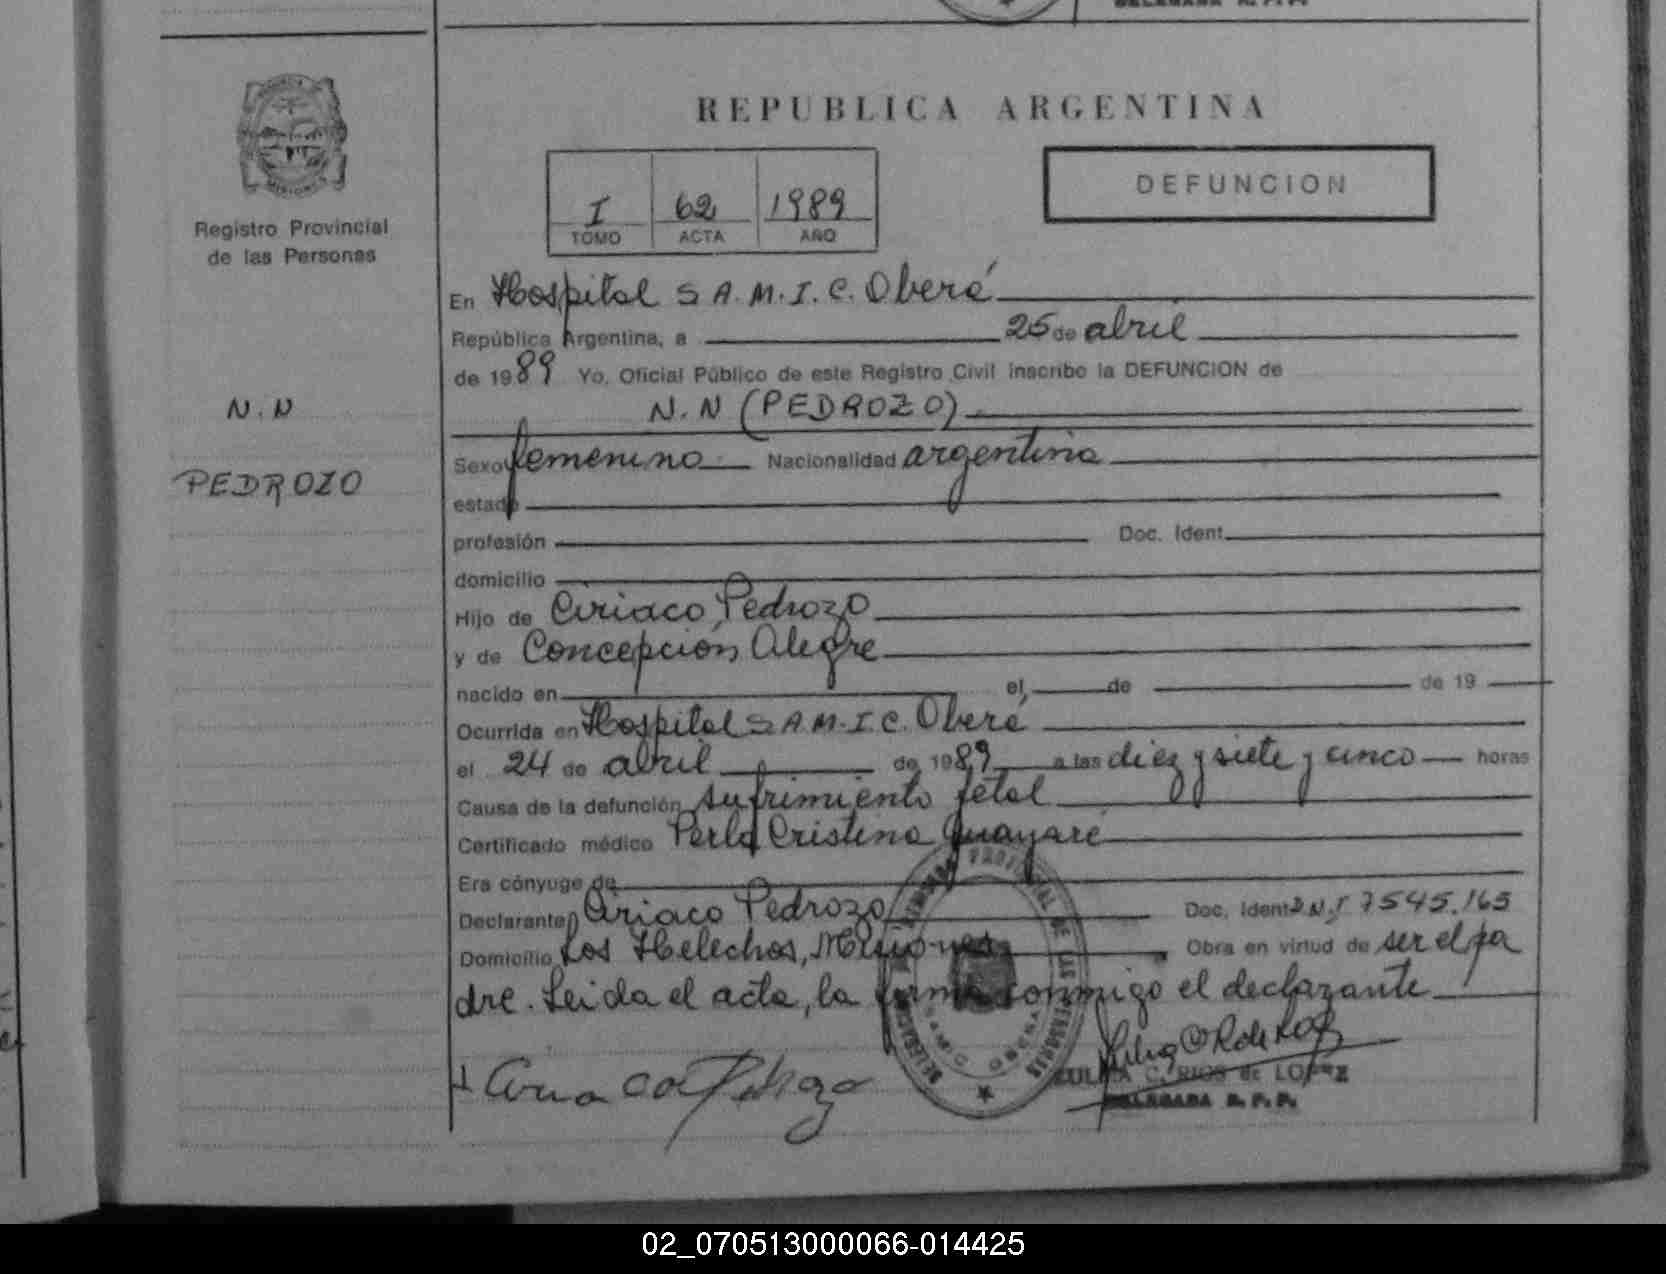 REPUBLICA ARGENTINA
I 62 1989
TOMO ACTA AÑO
DEFUNCION
MISIONES
Registro Provincial
de las Personas
N.N
PEDROZO
En Hospital S A.M.I.C. Oberá
República Argentina, a 25 de abril
de 1989 Yo, Oficial Público de este Registro Civil inscribo la DEFUNCION de
N.N (PEDROZO)
Sexo femenino Nacionalidad argentina
estado
profesión Doc. Ident.
domicilio
Hijo de Ciriaco Pedrozo
y de Concepción Alegre
nacido en el de de 19
Ocurrida en Hospital S A.M.I.C. Oberá
el 24 de abril de 1989 a las diez y siete y cinco horas
Causa de la defunción sufrimiento fetal
Certificado médico Perla Cristina Guayaré
Era cónyuge de
Declarante Ciriaco Pedrozo Doc. Ident D.N.I 7545.165
Domicilio Los Helechos, Misiones Obra en virtud de ser el pa
dre. Leida el acta, la firma conmigo el declarante
Ciriaco Pedrozo
ZULMA C. RIOS de LOPEZ
DELEGADA R. P. P.
02_070513000066-014425